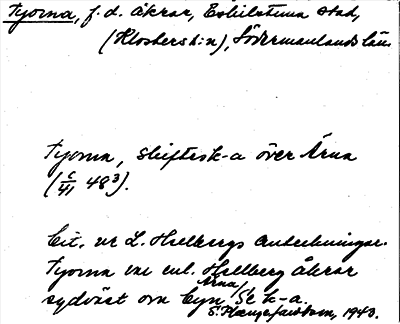 Tjorna, f. d. åkrar, Eskilstuna stad,
(Klosters k:n), Södermanlands län.
Tjorna, skifteskarta över Ärna
(C/41 48³).
Cit. ur L. Hellbergs anteckningar.
Tjorna var enl. Hellberg åkrar
sydväst om byn Ärna / Se k-a.
1943.